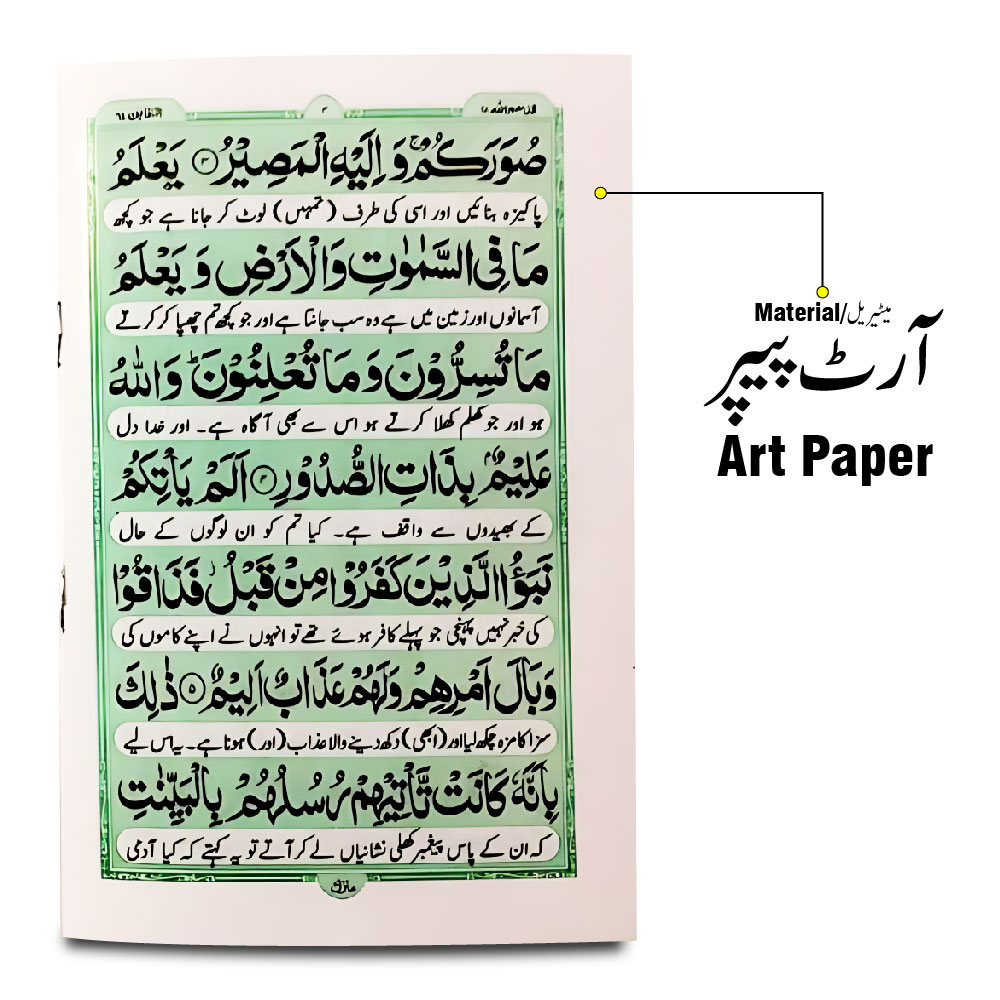 التغابن ٦٤
٢
قد سمع الله ٢٨
صُوَرَكُمْ ۚ وَ اِلَيْهِ الْمَصِيْرُ ۝٣ يَعْلَمُ
پاکیزہ بنائیں اور اسی کی طرف (تمہیں) لوٹ کر جانا ہے جو کچھ
مَا فِي السَّمٰوٰتِ وَالْاَرْضِ وَ يَعْلَمُ
آسمانوں اور زمین میں ہے وہ سب جانتا ہے اور جو کچھ تم چھپا کر کرتے
مَا تُسِرُّوْنَ وَ مَا تُعْلِنُوْنَ ؕ وَاللّٰهُ
ہو اور جو کھلم کھلا کرتے ہو اس سے بھی آگاہ ہے۔ اور خدا دل
عَلِيْمٌۢ بِذَاتِ الصُّدُوْرِ ۝٤ اَلَمْ يَاْتِكُمْ
کے بھیدوں سے واقف ہے۔ کیا تم کو ان لوگوں کے حال
نَبَؤُا الَّذِيْنَ كَفَرُوْا مِنْ قَبْلُ ۫ فَذَاقُوْا
کی خبر نہیں پہنچی جو پہلے کافر ہوئے تھے تو انہوں نے اپنے کاموں کی
وَبَالَ اَمْرِهِمْ وَلَهُمْ عَذَابٌ اَلِيْمٌ ۝٥ ذٰلِكَ
سزا کا مزہ چکھ لیا اور (ابھی) دکھ دینے والا عذاب (اور) ہونا ہے۔ یہ اس لیے
بِاَنَّهٗ كَانَتْ تَّاْتِيْهِمْ رُسُلُهُمْ بِالْبَيِّنٰتِ
کہ ان کے پاس پیغمبر کھلی نشانیاں لے کر آتے تو یہ کہتے کہ کیا آدمی
Material/میٹیریل
آرٹ پیپر
Art Paper